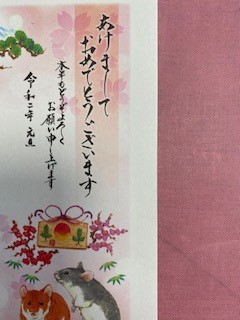 あけまして
おめでとうございます
本年もどうぞよろしく
お願い申し上げます
令和二年 元旦